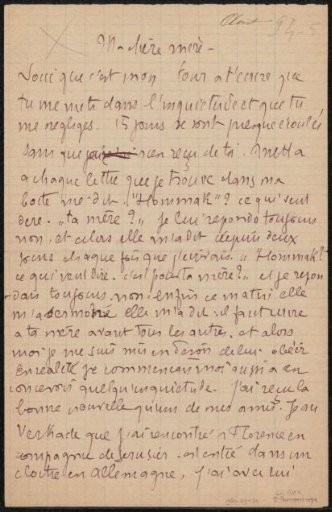 Août 94-5
Ma chère mère -
Voici que c'est mon tour à t'écrire que
tu me mets dans l'inquiétude et que tu
me négliges. 15 jours se sont presque écoulés
sans que j'ai rien reçu de toi.
à chaque lettre que je trouve dans ma
boîte me dit. "Hommak"? ce qui veut
dire. "ta mère?" je lui réponds toujours
non, et alors elle m'a dit depuis deux
jours chaque fois que j'écrivais. "Hommak?"
ce qui veut dire. c'est pour ta mère?" et je répon-
dais toujours non. enfin ce matin elle
m'a sermonné elle m'a dit il faut écrire
à ta mère avant tous les autres. et alors
moi je me suis mis en devoir de lui obéir
En réalité je commençais moi aussi à en
concevoir quelqu'inquiétude. J'ai reçu la
bonne nouvelle qu'un de mes amis. Jean
Verkade que j'ai rencontré à Florence en
compagnie de Serusier. est entré dans un
cloître en Allemagne, j'ai avec lui